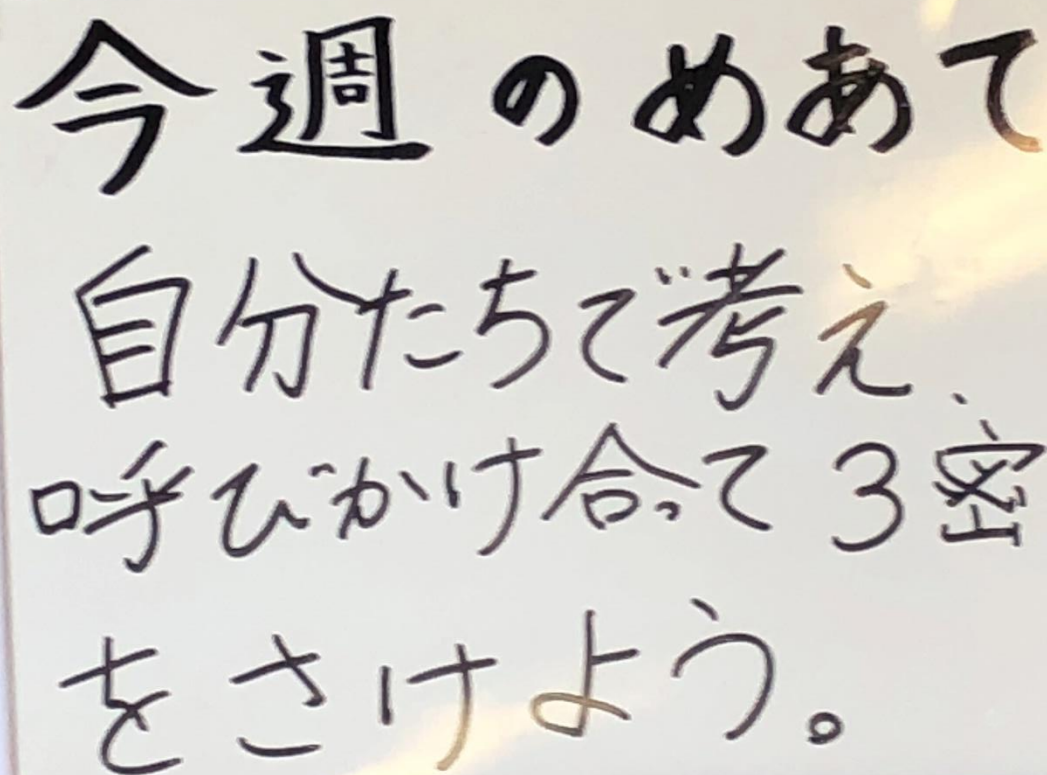 今週のめあて
自分たちで考え、
呼びかけ合って3密
をさけよう。